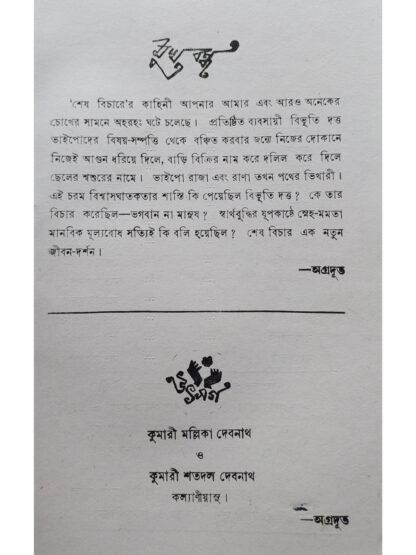 মুখবন্ধ
'শেষ বিচারে'র কাহিনী আপনার আমার এবং আরও অনেকের
চোখের সামনে অহরহঃ ঘটে চলেছে। প্রতিষ্ঠিত ব্যবসায়ী বিভূতি দত্ত
ভাইপোদের বিষয়-সম্পত্তি থেকে বঞ্চিত করবার জন্যে নিজের দোকানে
নিজেই আগুন ধরিয়ে দিলে, বাড়ি বিক্রির নাম করে দলিল করে দিলে
ছেলের শ্বশুরের নামে। ভাইপো রাজা এবং রাণা তখন পথের ভিখারী।
এই চরম বিশ্বাসঘাতকতার শাস্তি কি পেয়েছিল বিভূতি দত্ত? কে তার
বিচার করেছিল—ভগবান না মানুষ? স্বার্থবুদ্ধির যূপকাষ্ঠে স্নেহ-মমতা
মানবিক মূল্যবোধ সত্যিই কি বলি হয়েছিল? শেষ বিচার এক নতুন
জীবন-দর্শন।
—অগ্রদূত
উৎসর্গ
কুমারী মল্লিকা দেবনাথ
ও
কুমারী শতদল দেবনাথ
কল্যাণীয়াসু।
—অগ্রদূত